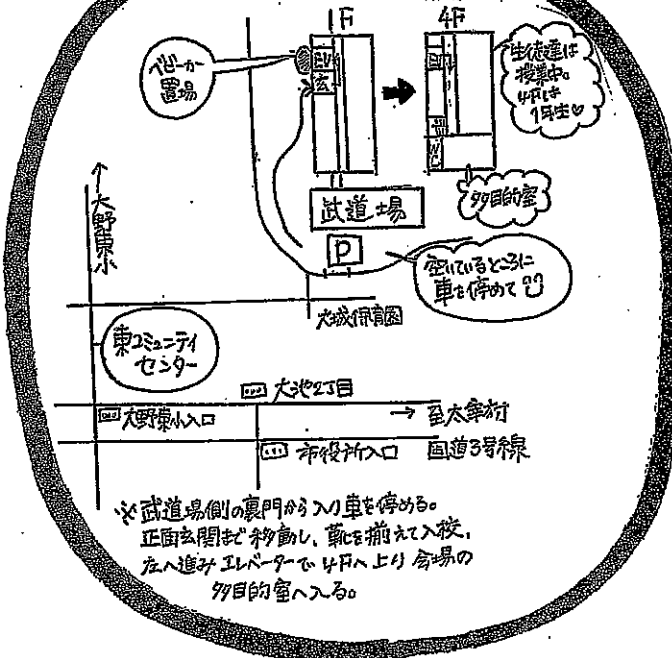 1F
4F
ベビーカー
置場
EV
玄
EV
生徒達は
授業中。
4Fは
1年生♡
多目的室
武道場
P
空いているところに
車を停めて
↑大野東小
大城保育園
東コミュニティ
センター
大池2丁目
大野東小入口
→ 至太宰府
市役所入口
国道3号線
※武道場側の裏門から入り車を停める。
正面玄関まで移動し、靴を揃えて入校、
左へ進みエレベーターで4Fへ上り会場の
多目的室へ入る。